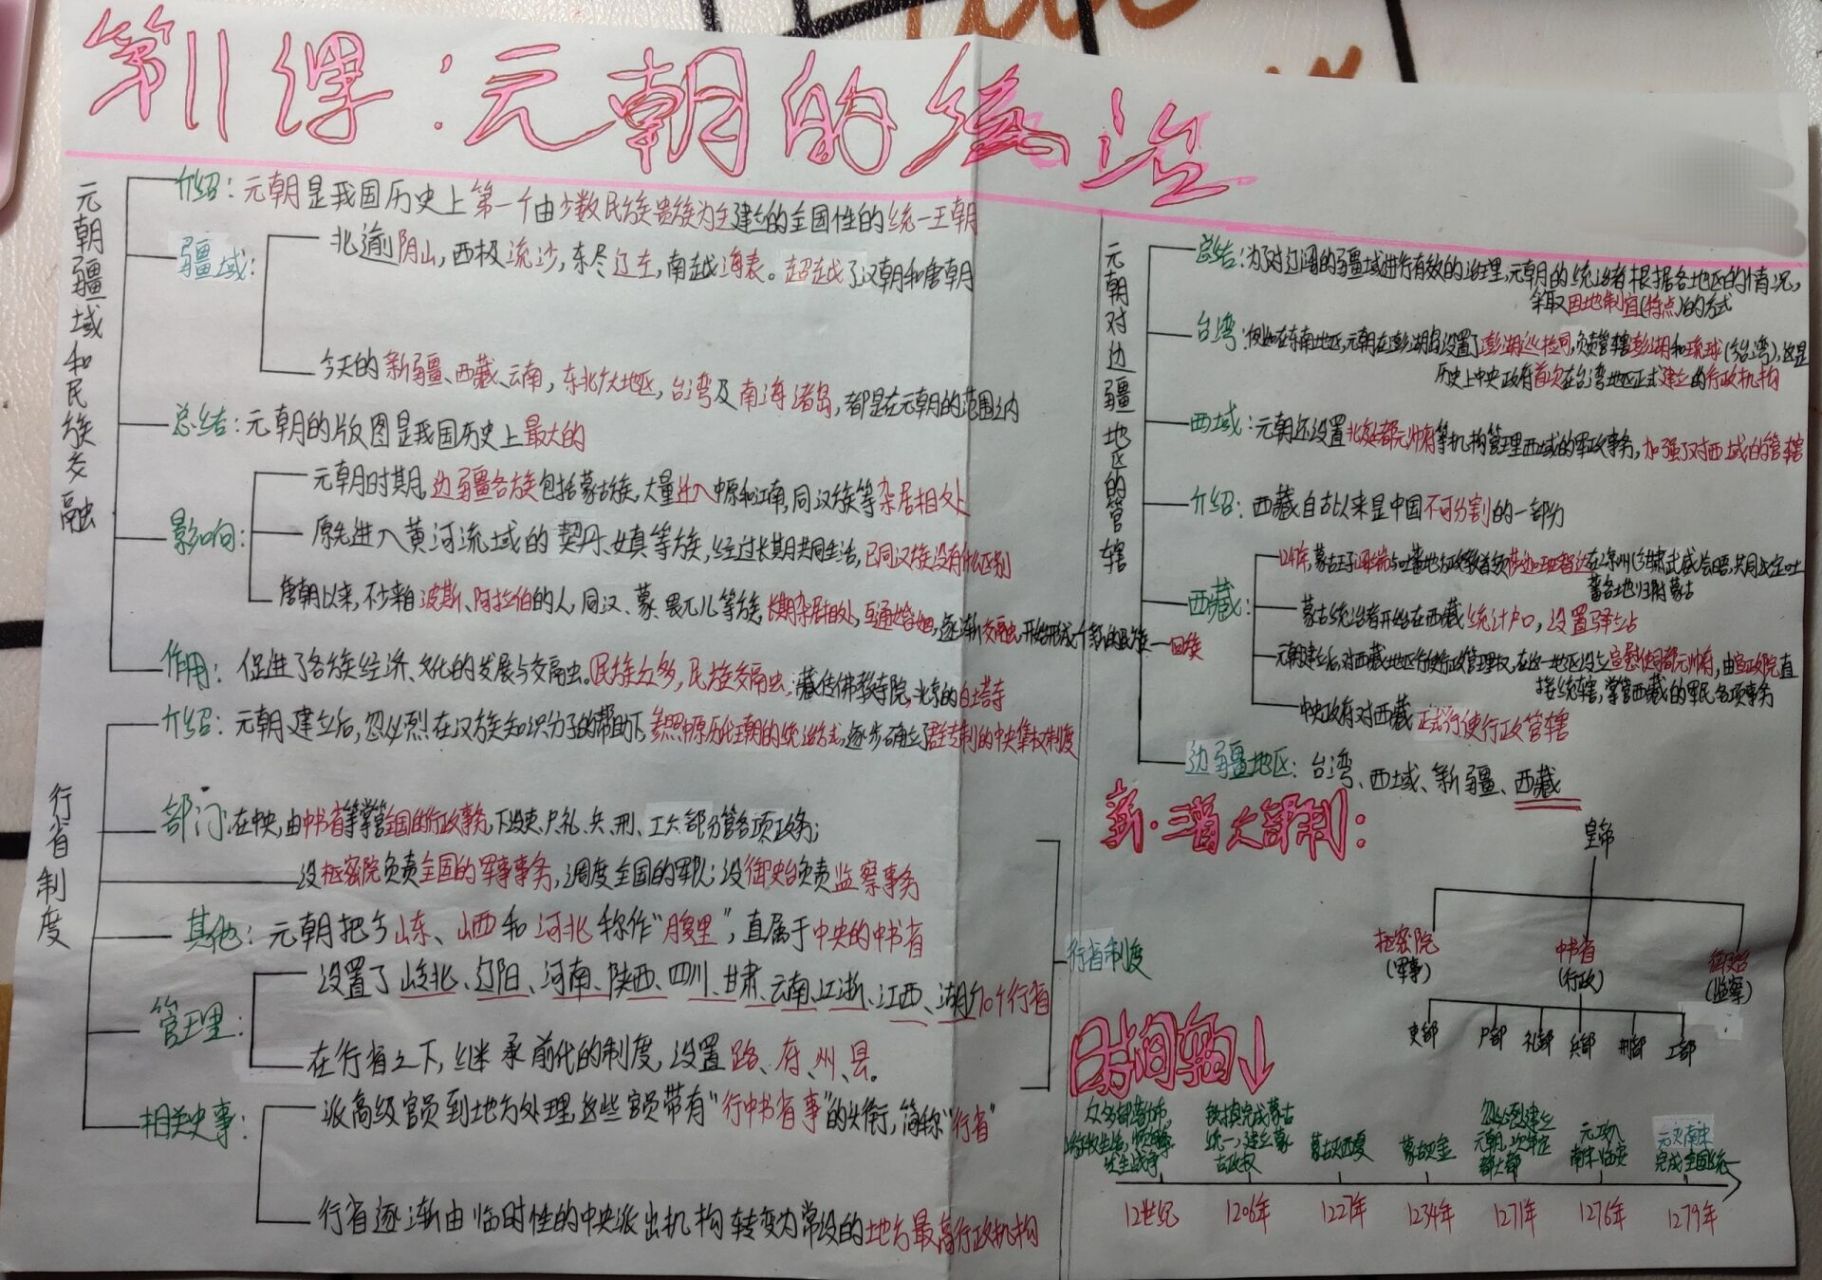 第11课:元朝的统治
元朝疆域和民族交融
介绍:元朝是我国历史上第一个由少数民族贵族为主建立的全国性的统一王朝
疆域:
北逾阴山,西极流沙,东尽辽左,南越海表。超越了汉朝和唐朝
今天的新疆、西藏、云南,东北广大地区,台湾及南海诸岛,都是在元朝的范围之内
总结:元朝的版图是我国历史上最大的
影响:
元朝时期,边疆各族包括蒙古族,大量进入中原和江南,同汉族等杂居相处
原先进入黄河流域的契丹、女真等族,经过长期共同生活,已同汉族没有什么区别
唐朝以来,不少来自波斯、阿拉伯的人,同汉、蒙、畏兀儿等族,长期杂居相处,互通婚姻,逐渐交融,开始形成一个新的民族—回族
作用:促进了各族经济、文化的发展与交融。民族众多,民族交融,藏传佛教寺院,北京的白塔寺
行省制度
介绍:元朝建立后,忽必烈在汉族知识分子的帮助下,参照中原历代王朝的统治方式,逐步确立了君主专制的中央集权制度
部门:在中央,由中书省等掌管全国的行政事务,下设吏、户、礼、兵、刑、工六部分管各项政务;
设枢密院负责全国的军事事务,调度全国的军队;设御史台负责监察事务
其他:元朝把今山东、山西和河北称作“腹里”,直属于中央的中书省
管理:
设置了岭北、辽阳、河南、陕西、四川、甘肃、云南、江浙、江西、湖广10个行省
在行省之下,继承前代的制度,设置路、府、州、县。
行省制度
相关史事:
派高级官员到地方处理,这些官员带有“行中书省事”的头衔,简称“行省”
行省逐渐由临时性的中央派出机构转变为常设的地方最高行政机构
元朝对边疆地区的管辖
总结:为了对辽阔的疆域进行有效的治理,元朝的统治者根据各地区的情况,
采取因地制宜(特点)的方式
台湾:例如在东南地区,元朝在澎湖岛设置了澎湖巡检司,负责管辖澎湖和琉球(今台湾),这是
历史上中央政府首次在台湾地区正式建立的行政机构
西域:元朝还设置北庭都元帅府等机构管理西域的军政事务,加强了对西域的管辖
介绍:西藏自古以来是中国不可分割的一部分
西藏:
1247年,蒙古王子阔端与吐蕃地方政教首领萨迦班智达在凉州(今甘肃武威)会晤,共同议定吐
蕃各地归附蒙古
蒙古统治者开始在西藏统计户口,设置驿站
元朝建立后,对西藏地区行使行政管理权,在这一地区设立宣慰使司都元帅府,由宣政院直
接统辖,掌管西藏的军民各项事务
中央政府对西藏正式行使行政管辖
边疆地区:台湾、西域、新疆、西藏
新·三省六部制:
皇帝
枢密院
(军事)
中书省
(行政)
御史台
(监察)
吏部 户部 礼部 兵部 刑部 工部
时间轴↓
众多部落分布,
发生战争
铁木真完成蒙古
统一,建立蒙
古政权
蒙古灭西夏
蒙古灭金
忽必烈建立
元朝,次年定
都大都
元攻入
南宋临安
元灭南宋
完成全国统一
12世纪 1206年 1227年 1234年 1271年 1276年 1279年